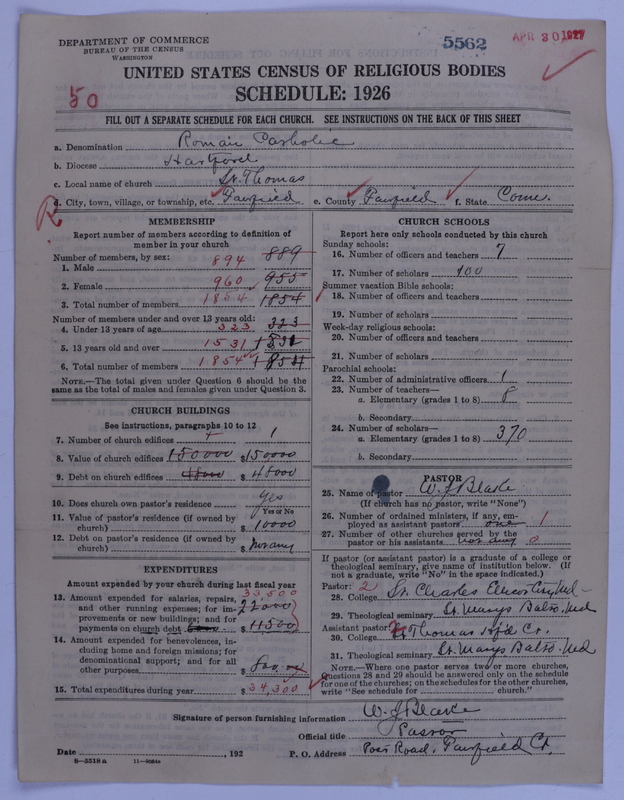 DEPARTMENT OF COMMERCE
BUREAU OF THE CENSUS
WASHINGTON
5562
APR 30 1927
UNITED STATES CENSUS OF RELIGIOUS BODIES
SCHEDULE: 1926
50
FILL OUT A SEPARATE SCHEDULE FOR EACH CHURCH. SEE INSTRUCTIONS ON THE BACK OF THIS SHEET
a. Denomination Roman Catholic
b. Diocese Hartford
c. Local name of church St. Thomas
d. City, town, village, or township, etc. Fairfield e. County Fairfield f. State Conn.
R
MEMBERSHIP
Report number of members according to definition of member in your church
Number of members, by sex:
1. Male 894 889
2. Female 960 955
3. Total number of members 1854 1854
Number of members under and over 13 years old:
4. Under 13 years of age 323 323
5. 13 years old and over 1531 1531
6. Total number of members 1854 1854
NOTE.—The total given under Question 6 should be the same as the total of males and females given under Question 3.
CHURCH BUILDINGS
See instructions, paragraphs 10 to 12
7. Number of church edifices 1
8. Value of church edifices 150000 $150000
9. Debt on church edifices 48000 $48000
10. Does church own pastor's residence yes
Yes or No
11. Value of pastor's residence (if owned by church) $10000
12. Debt on pastor's residence (if owned by church) $ not any
EXPENDITURES
Amount expended by your church during last fiscal year
13. Amount expended for salaries, repairs, and other running expenses; for improvements or new buildings; and for payments on church debt 33,500 22000 $11500
14. Amount expended for benevolences, including home and foreign missions; for denominational support; and for all other purposes 800
15. Total expenditures during year $34,300
CHURCH SCHOOLS
Report here only schools conducted by this church
Sunday schools:
16. Number of officers and teachers 7
17. Number of scholars 100
Summer vacation Bible schools:
18. Number of officers and teachers
19. Number of scholars
Week-day religious schools:
20. Number of officers and teachers
21. Number of scholars
Parochial schools:
22. Number of administrative officers 1
23. Number of teachers—
a. Elementary (grades 1 to 8) 8
b. Secondary
24. Number of scholars—
a. Elementary (grades 1 to 8) 370
b. Secondary
PASTOR
25. Name of pastor W. J. Blake
(If church has no pastor, write "None")
26. Number of ordained ministers, if any, employed as assistant pastors one 1
27. Number of other churches served by the pastor or his assistants not any 0
If pastor (or assistant pastor) is a graduate of a college or theological seminary, give name of institution below. (If not a graduate, write "No" in the space indicated.)
Pastor: 2
28. College St. Charles Ellicott City Md
29. Theological seminary St. Marys Balto. Md
Assistant pastor:
30. College St Thomas Htf'd Ct.
31. Theological seminary St. Marys Balto. Md
NOTE.—Where one pastor serves two or more churches, Questions 28 and 29 should be answered only on the schedule for one of the churches; on the schedules for the other churches, write "See schedule for ........ church."
Signature of person furnishing information W. J. Blake
Official title Pastor
Date ........, 192 P. O. Address Post Road, Fairfield Ct.